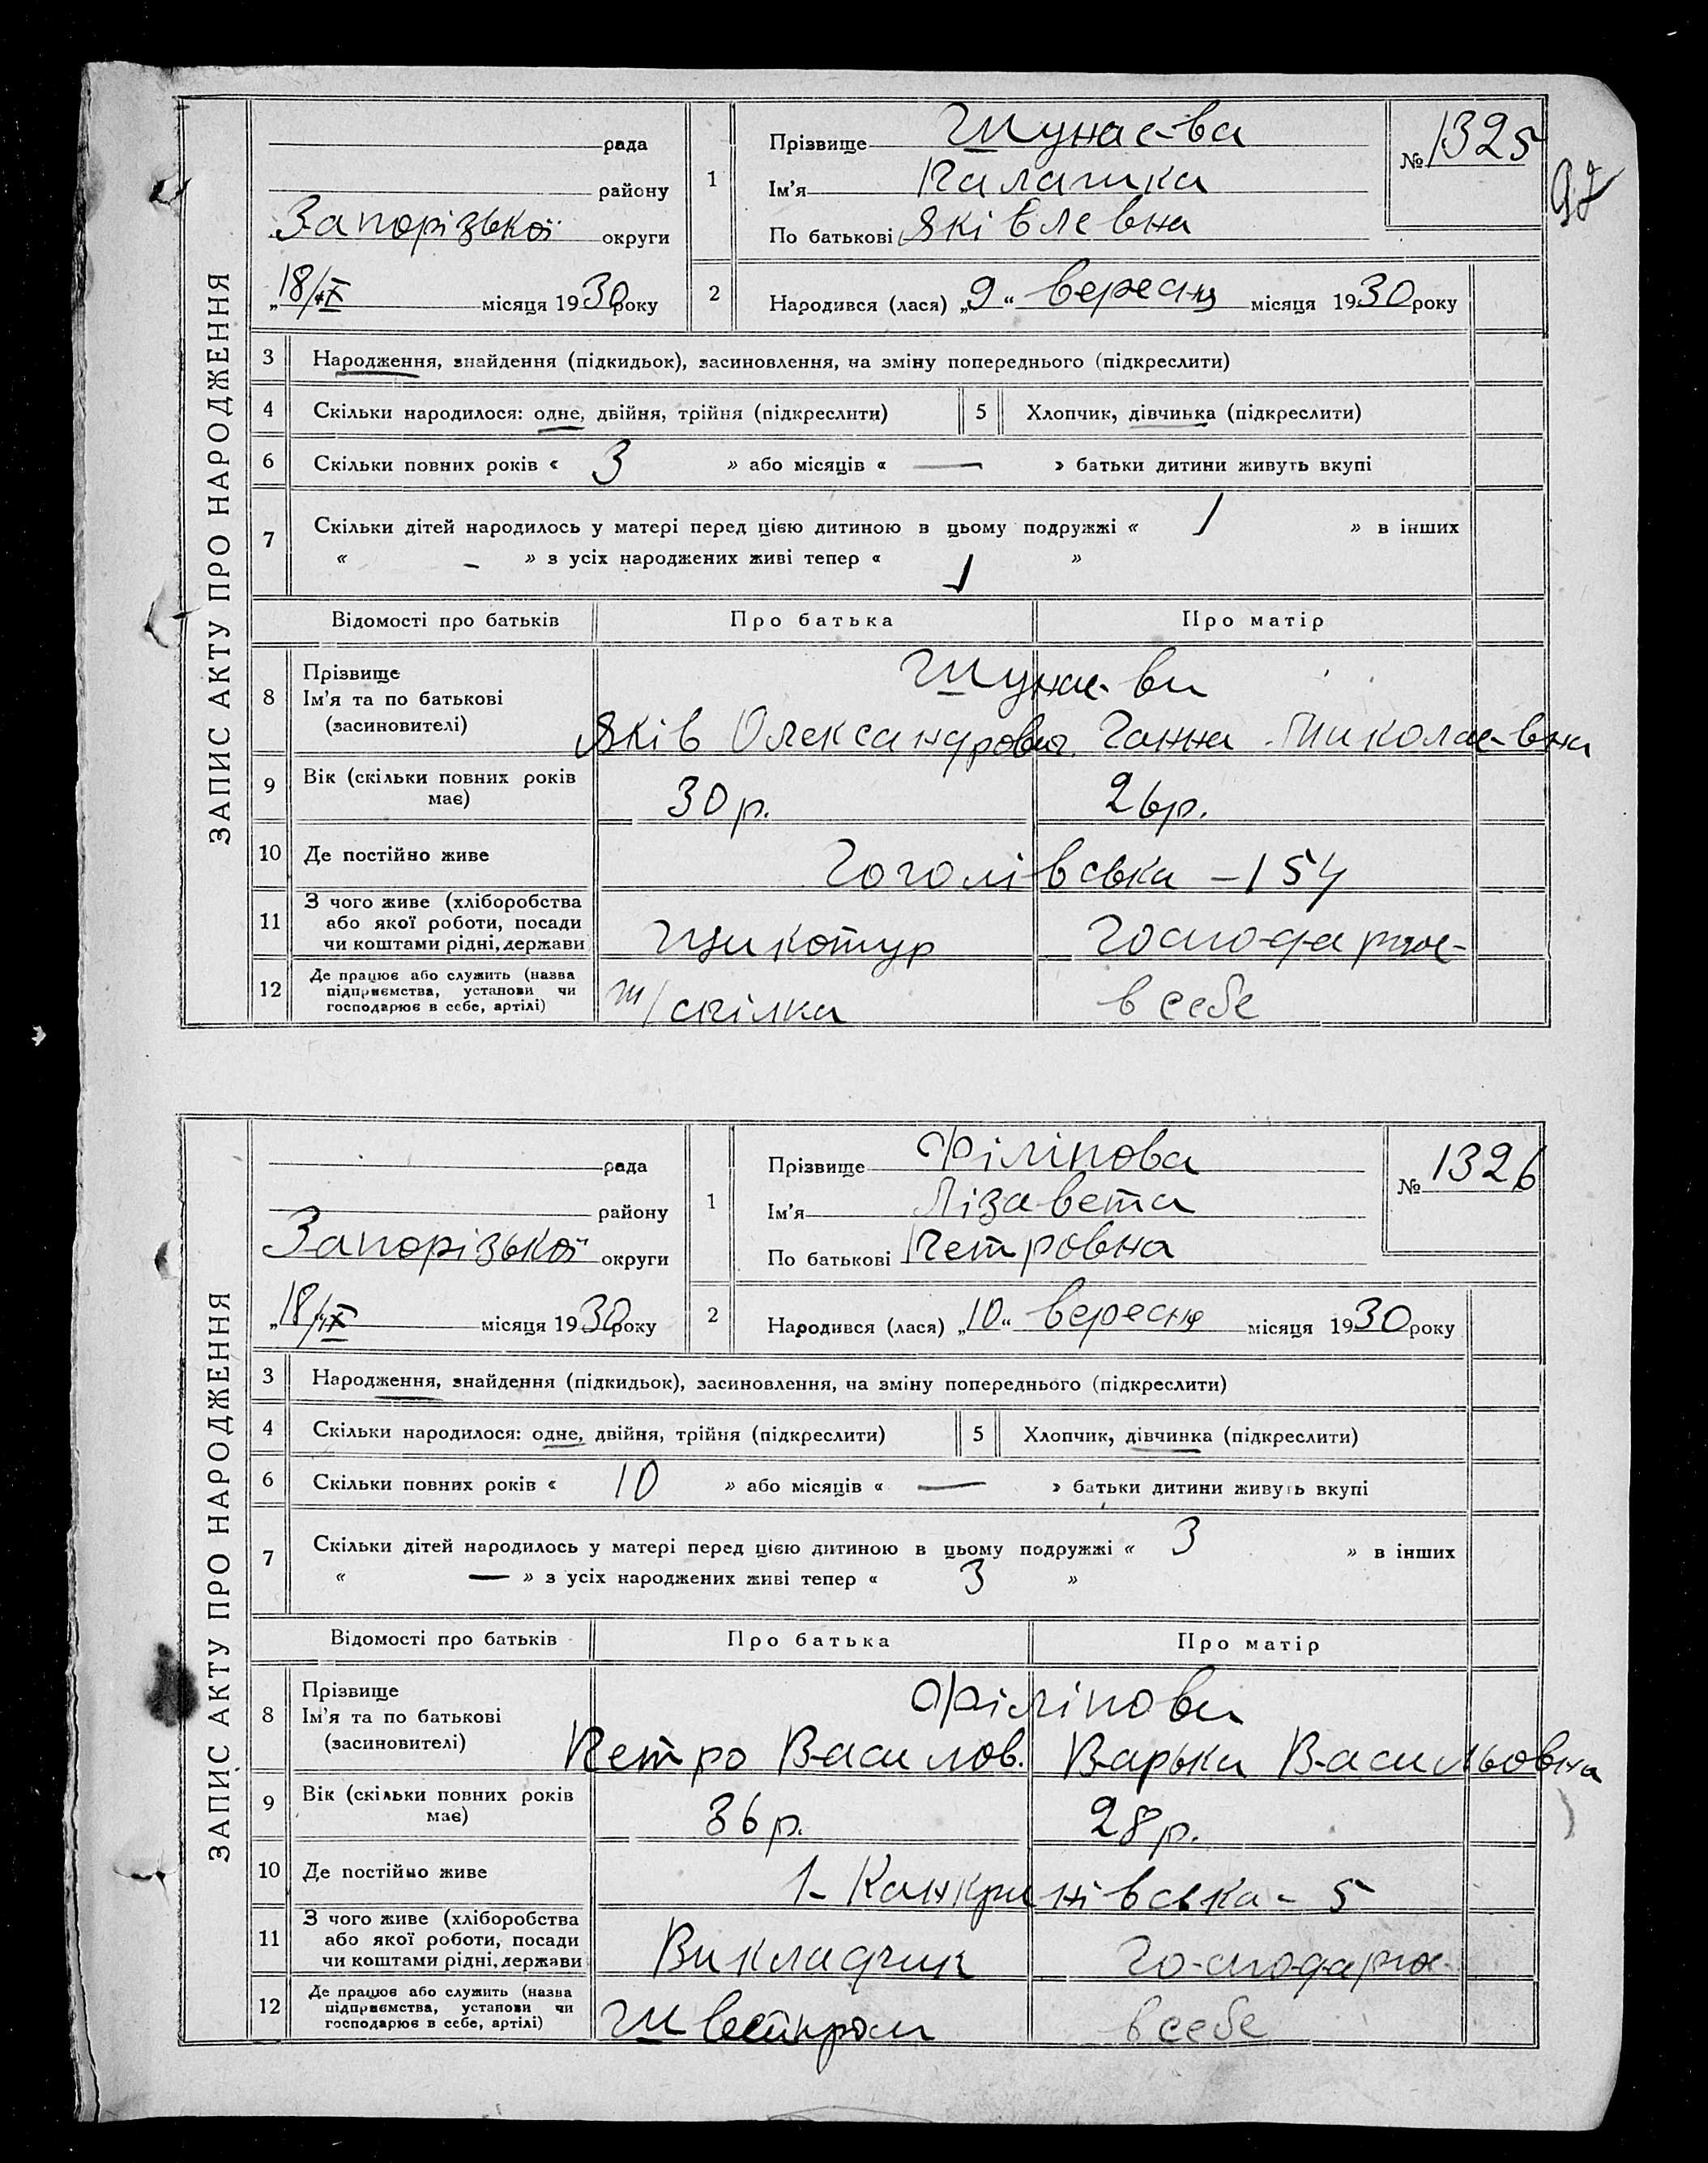 ЗАПИС АКТУ ПРО НАРОДЖЕННЯ
рада
району
Запорізької округи
„18/ІХ місяця 1930 року
1
Прізвище Шунаєва
Ім'я Палашка
По батькові Яківлевна
№ 1325
97
2 Народився (лася) „9“ вересня місяця 1930 року
3 Народження, знайдення (підкидьок), засиновлення, на зміну попереднього (підкреслити)
4 Скільки народилося: одне, двійня, трійня (підкреслити) 5 Хлопчик, дівчинка (підкреслити)
6 Скільки повних років « 3 » або місяців « — » батьки дитини живуть вкупі
7 Скільки дітей народилось у матері перед цією дитиною в цьому подружжі « 1 » в інших
« - » з усіх народжених живі тепер « 1 »
Відомості про батьків Про батька Про матір
8 Прізвище
Ім'я та по батькові
(засиновителі)
Шунаєви
Яків Олександрович Ганна Миколаєвна
9 Вік (скільки повних років має) 30 р. 26 р.
10 Де постійно живе Гоголівська – 154
11 З чого живе (хліборобства
або якої роботи, посади
чи коштами рідні, держави
Щикотур Господарює
12 Де працює або служить (назва
підприємства, установи чи
господарює в себе, артілі)
/спілка в себе
ЗАПИС АКТУ ПРО НАРОДЖЕННЯ
рада
району
Запорізької округи
„18/ІХ місяця 1930 року
1
Прізвище Філіпова
Ім'я Лізавета
По батькові Петровна
№ 1326
2 Народився (лася) „10“ вересня місяця 1930 року
3 Народження, знайдення (підкидьок), засиновлення, на зміну попереднього (підкреслити)
4 Скільки народилося: одне, двійня, трійня (підкреслити) 5 Хлопчик, дівчинка (підкреслити)
6 Скільки повних років « 10 » або місяців « — » батьки дитини живуть вкупі
7 Скільки дітей народилось у матері перед цією дитиною в цьому подружжі « 3 » в інших
« — » з усіх народжених живі тепер « 3 »
Відомості про батьків Про батька Про матір
8 Прізвище
Ім'я та по батькові
(засиновителі)
Філіпови
Петро Василов. Варька Васильовна
9 Вік (скільки повних років має) 36 р. 28 р.
10 Де постійно живе 1- Канкринівська - 5
11 З чого живе (хліборобства
або якої роботи, посади
чи коштами рідні, держави
Викладчик Господарює
12 Де працює або служить (назва
підприємства, установи чи
господарює в себе, артілі)
Швейпром в себе